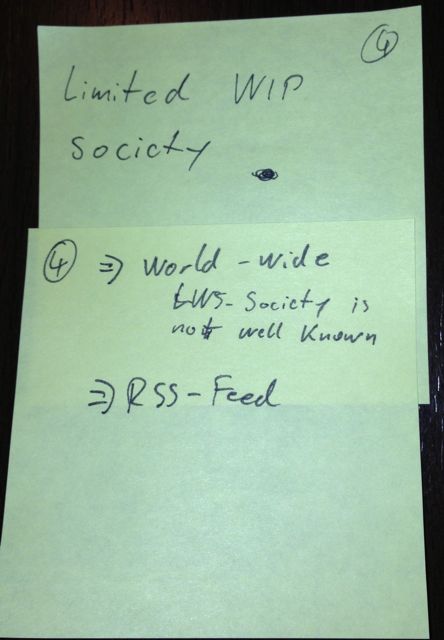 4
Limited WIP
Society
4 ⇒ World-wide
LWS-Society is
not well known
⇒ RSS-Feed